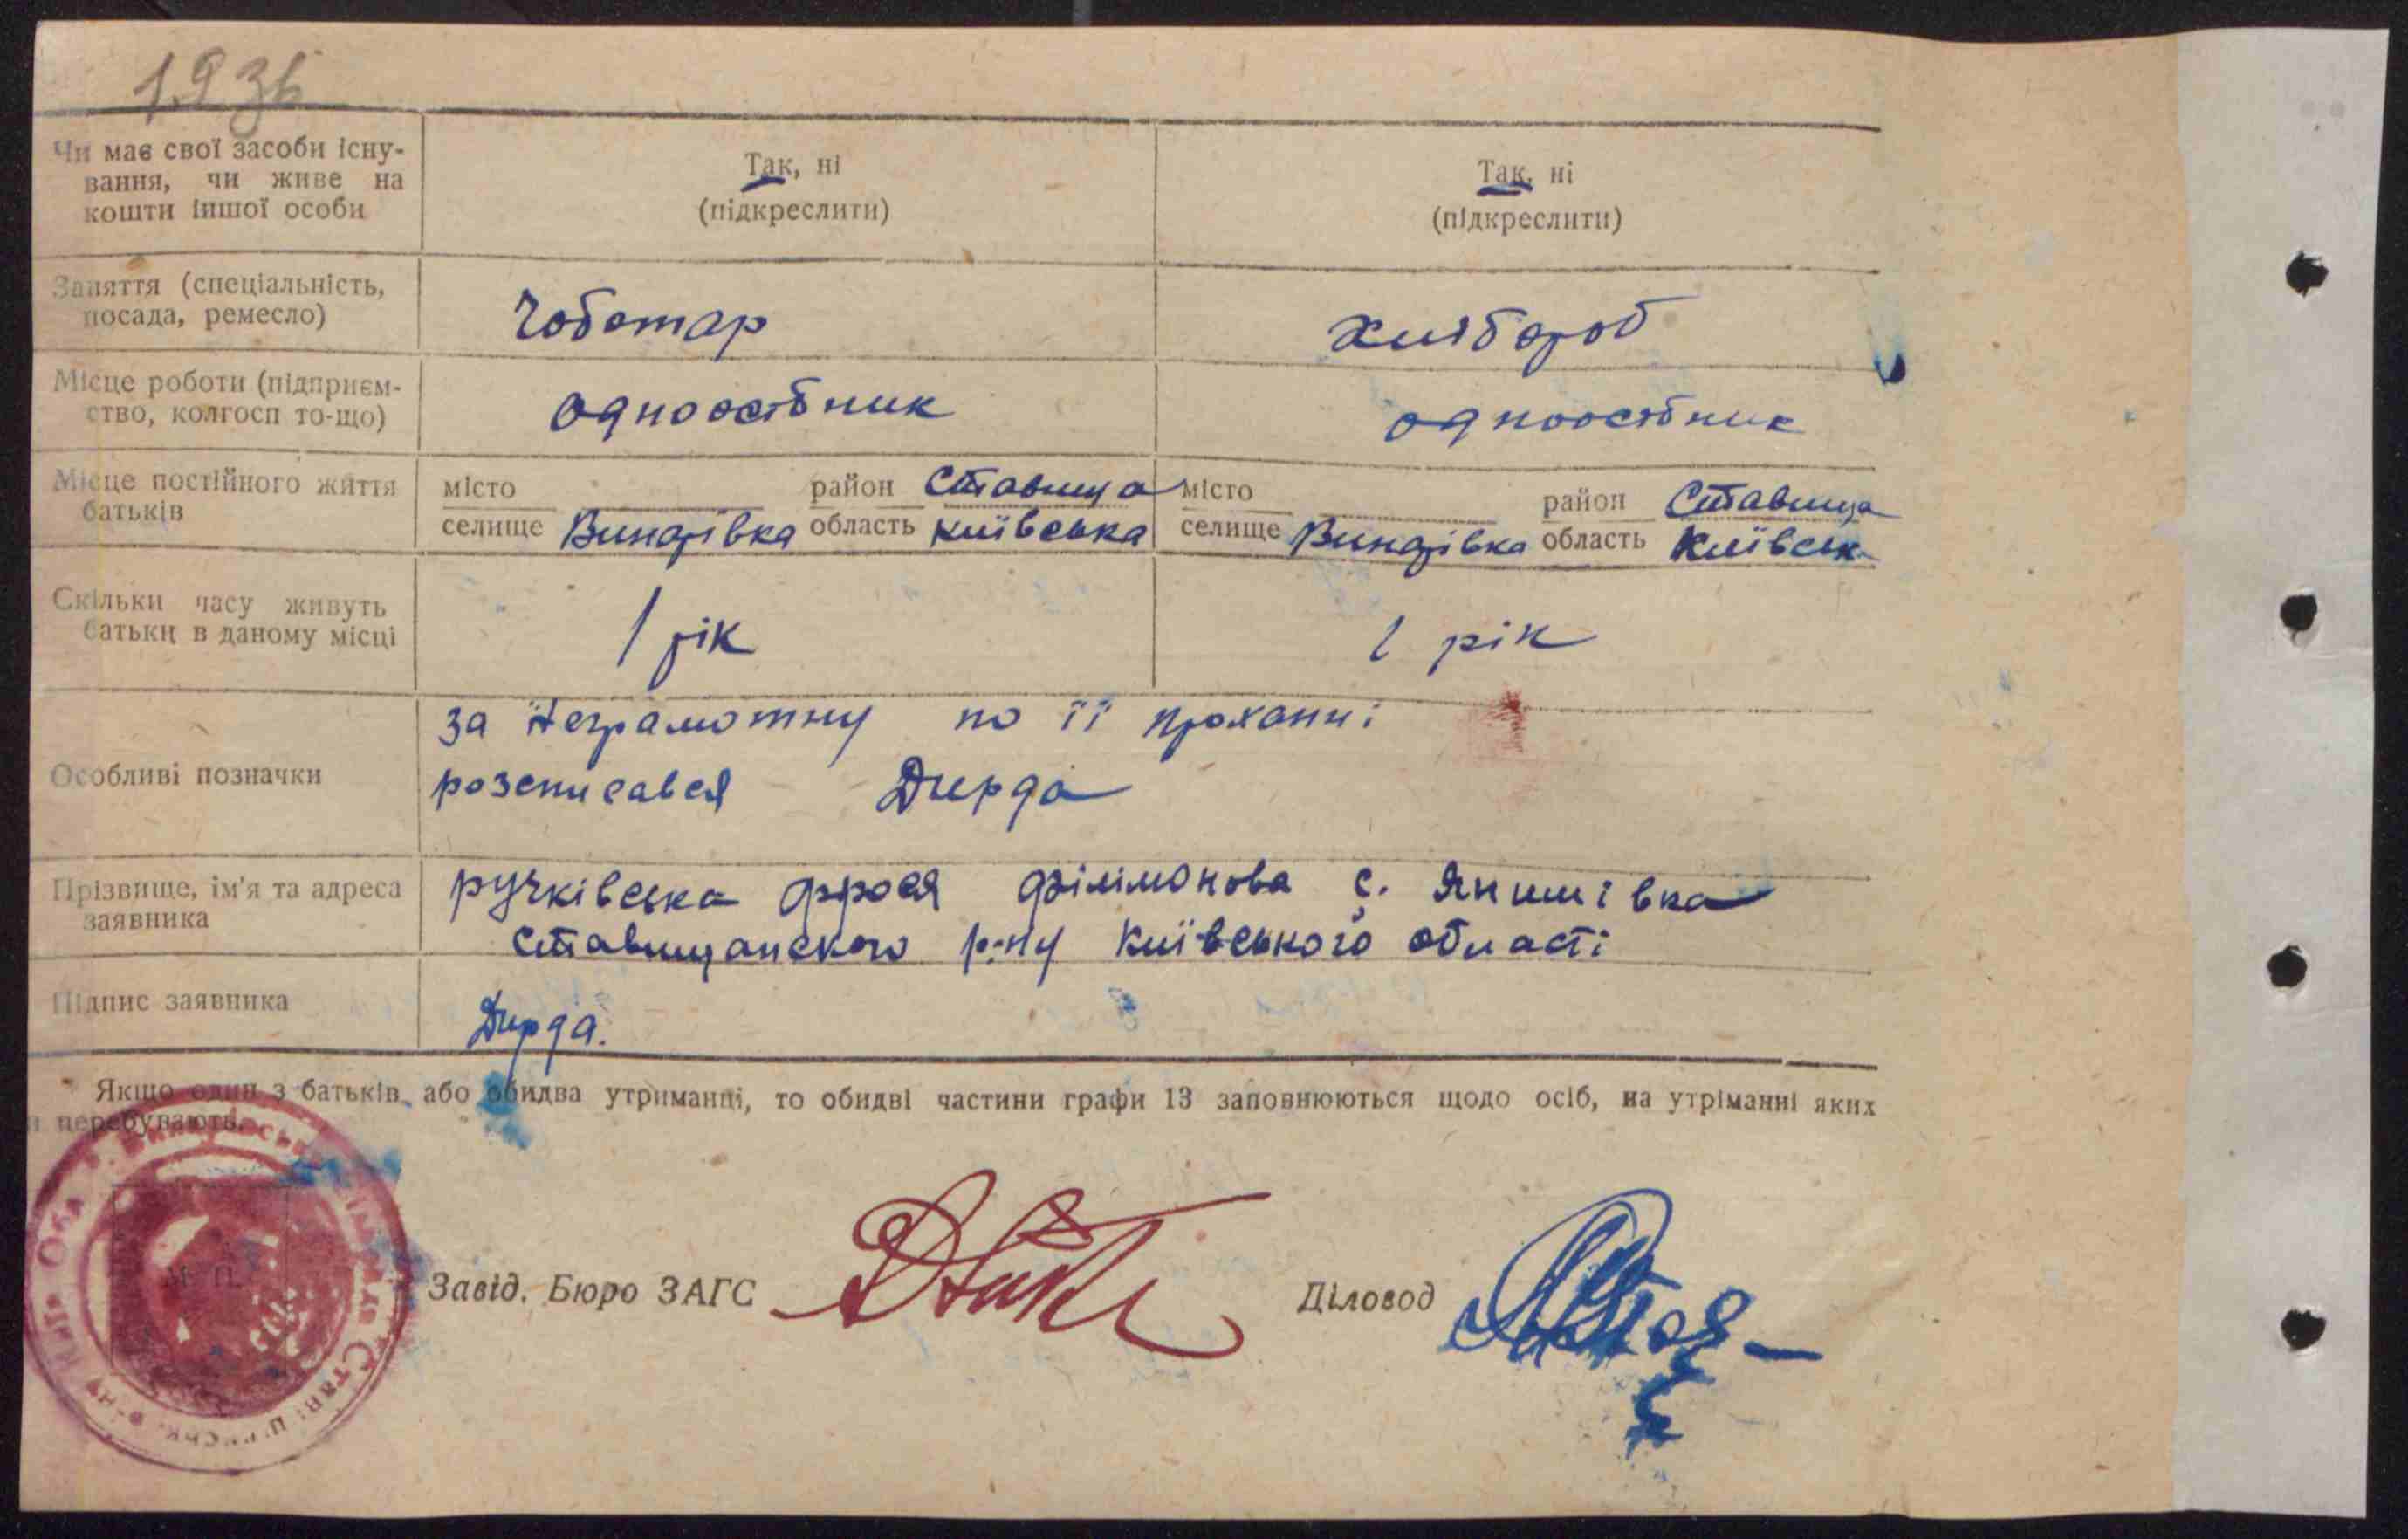 1936
Чи має свої засоби існу-
вання, чи живе на
кошти іншої особи
Так, ні
(підкреслити)
Так, ні
(підкреслити)
Заняття (спеціальність,
посада, ремесло)
Чоботар
хлібороб
Місце роботи (підприєм-
ство, колгосп то-що)
одноосібник
одноосібник
Місце постійного життя
батьків
місто
район Ставища
селище Винарівка область київська
місто
район Ставища
селище Винарівка область Київськ
Скільки часу живуть
батьки в даному місці
1 рік
1 рік
Особливі позначки
за неграмотну по її проханні
розсписався Дирда
Прізвище, ім'я та адреса
заявника
ручківська фрося філімонова с. Янишівка
ставищанского р-ну Київського області
Підпис заявника
Дирда.
* Якщо один з батьків або обидва утриманці, то обидві частини графи 13 заповнюються щодо осіб, на утріманні яких
перебувають.
М. П.
Завід. Бюро ЗАГС
Діловод